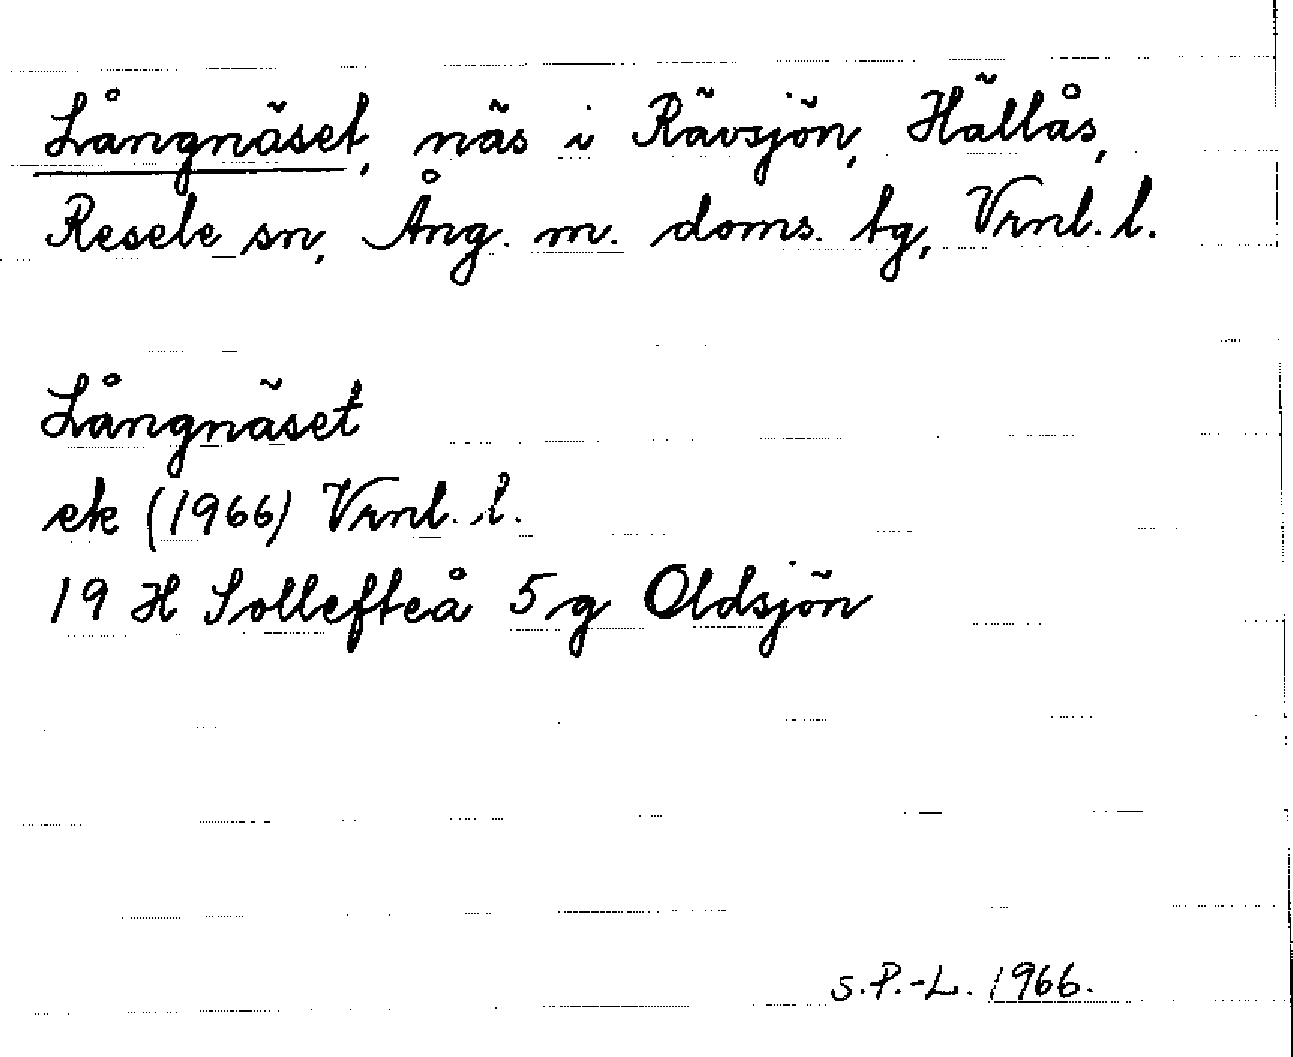 Långnäset, näs i Rävsjön, Hällås,
Resele sn, Ång. m. doms. tg, Vrnl. l.
Långnäset
ek (1966) Vrnl. l.
19 H Sollefteå 5 g Oldsjön
S.P.-L. 1966.